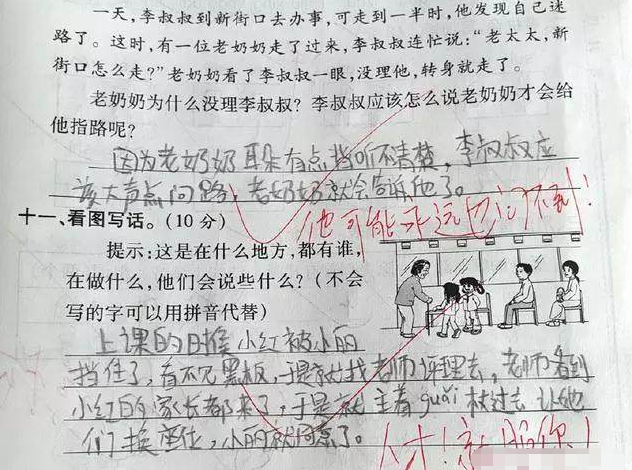 一天，李叔叔到新街口去办事，可走到一半时，他发现自己迷
路了。这时，有一位老奶奶走了过来，李叔叔连忙说：“老太太，新
街口怎么走？”老奶奶看了李叔叔一眼，没理他，转身就走了。
老奶奶为什么没理李叔叔？李叔叔应该怎么说老奶奶才会给
他指路呢？
因为老奶奶耳朵有点挡听不清楚，李叔叔应
该大声点问路，老奶奶就会告诉他了。
他可能永远也问不到！
十一、看图写话。(10分)
提示：这是在什么地方，都有谁，
在做什么，他们会说些什么？(不会
写的字可以用拼音代替)
上课的时候小红被小丽
挡住了，看不见黑板，于是就找老师评理去，老师看到
小红的家长都来了，于是就主着guǎi杖过去让她
们换座位，小丽就同意了。
人才！